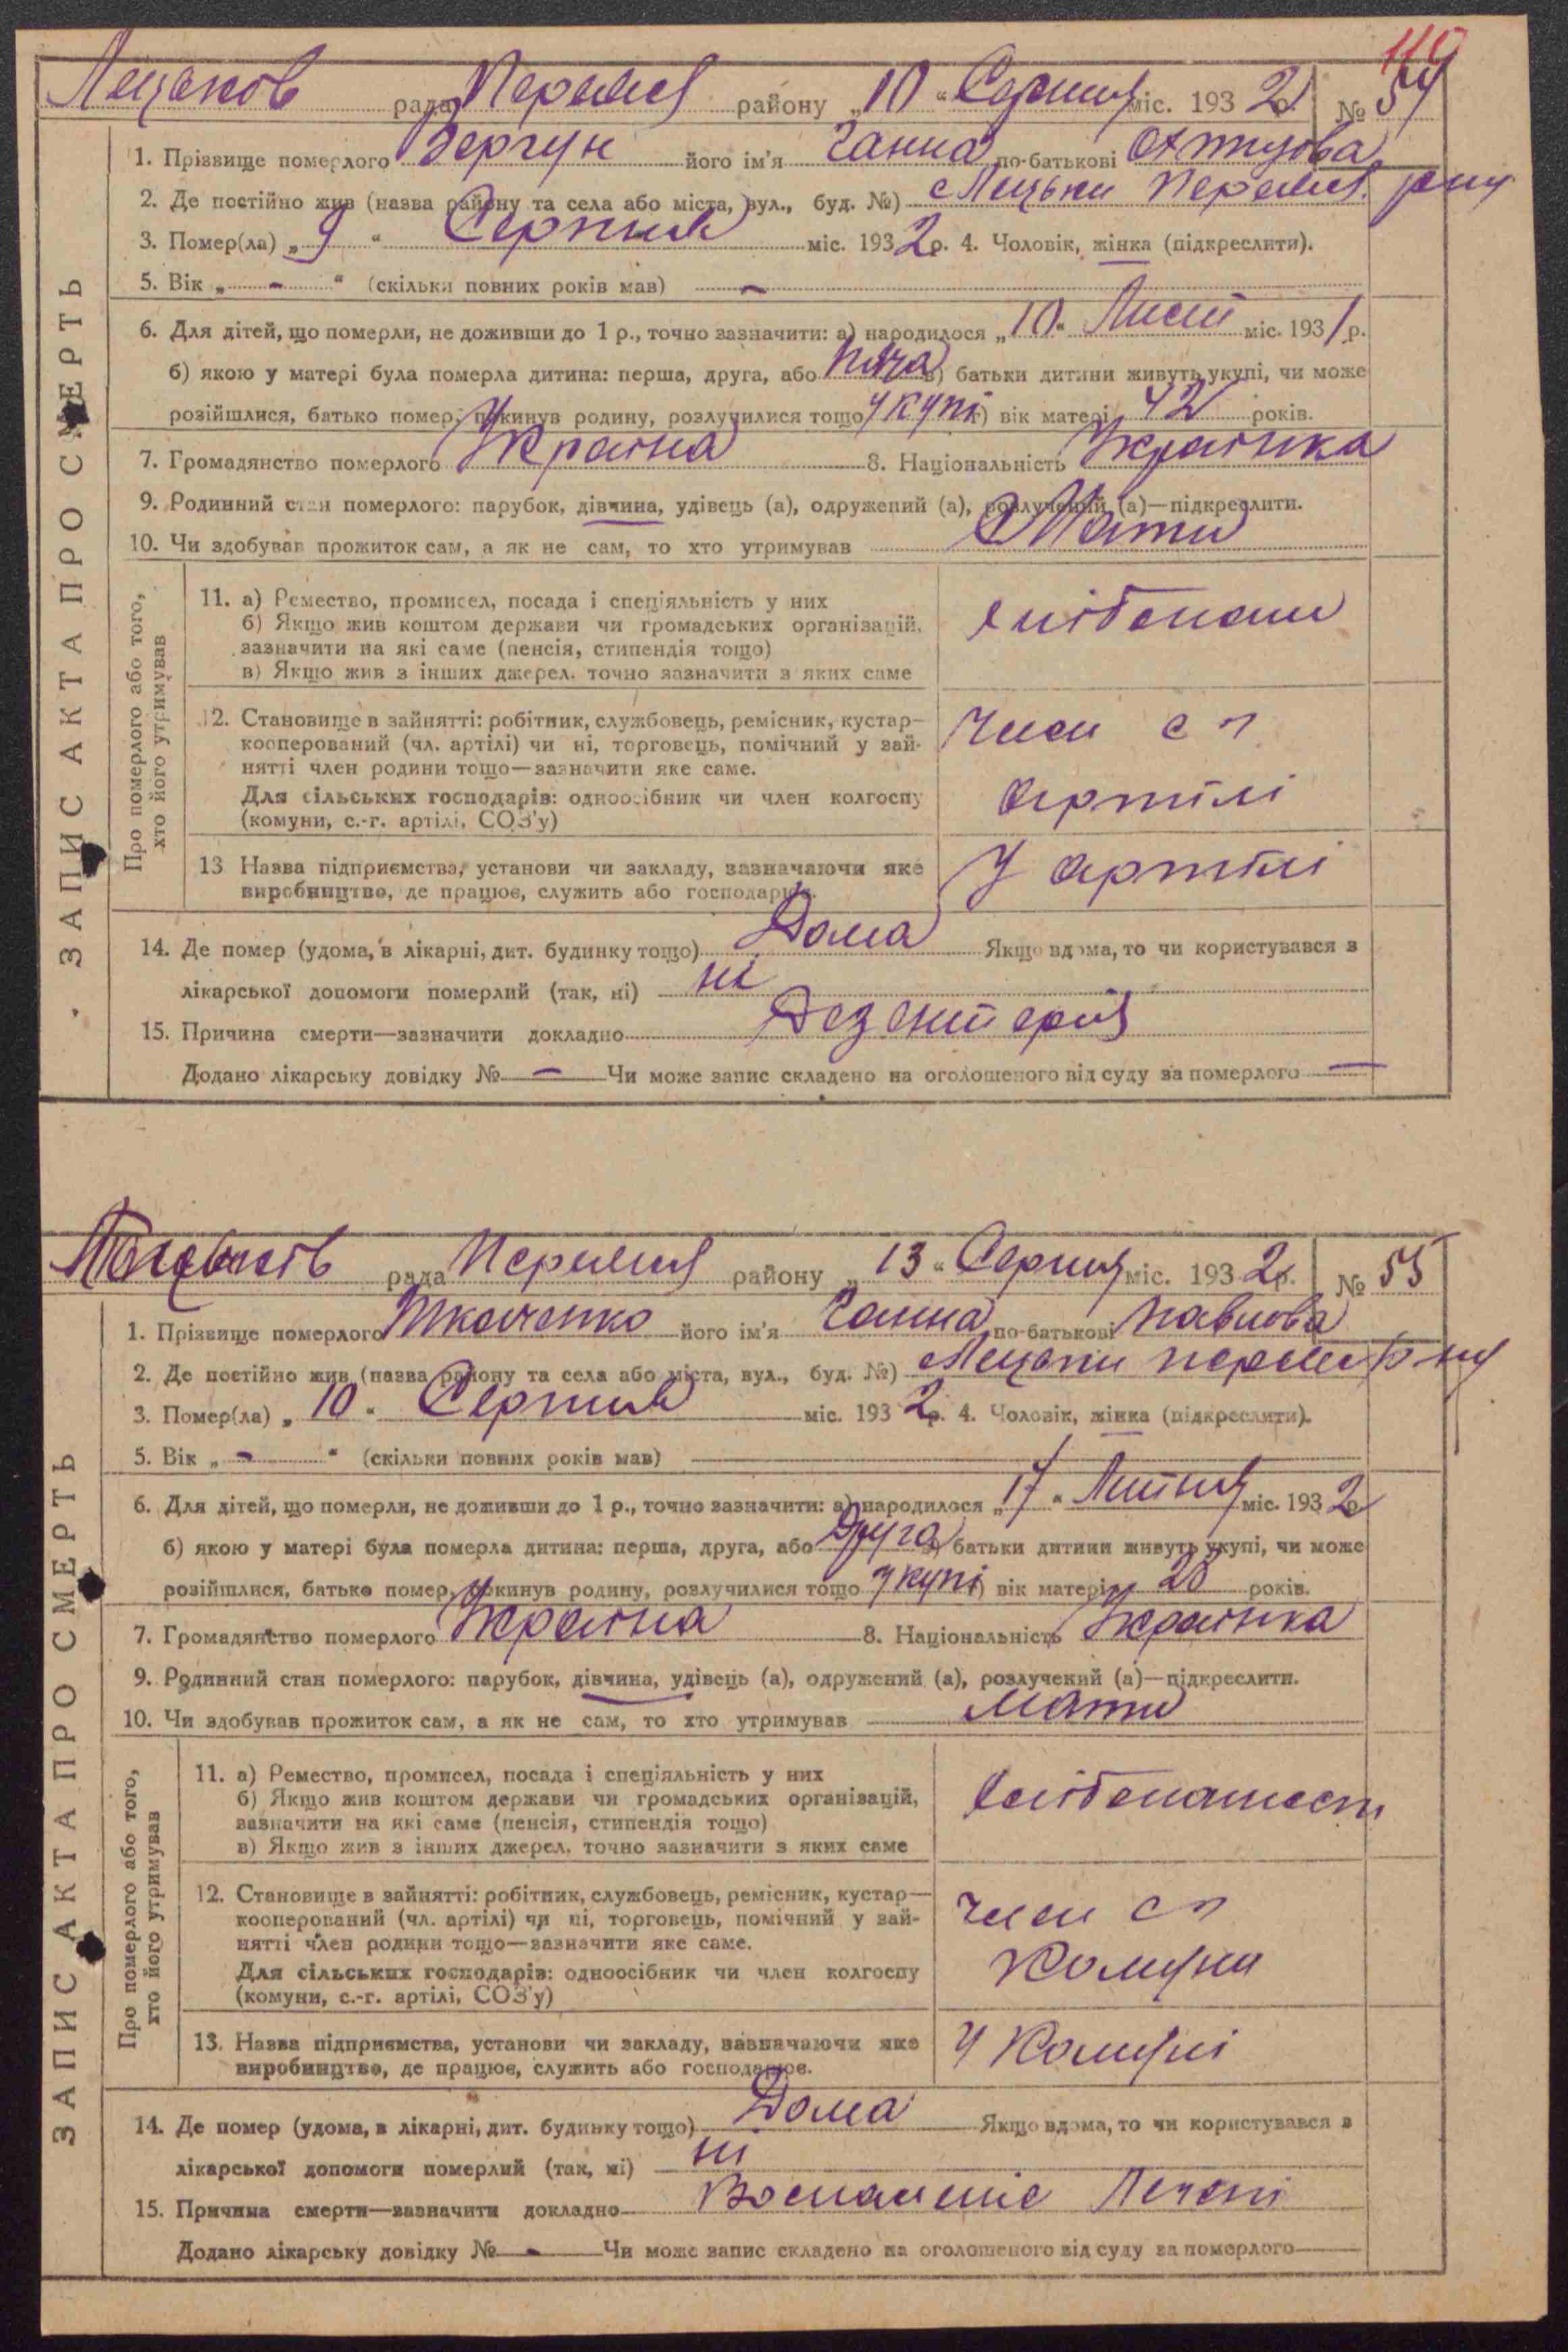 110
рада району „10“ Серпня міс. 1932 р. № 54
ЗАПИС АКТА ПРО СМЕРТЬ
1. Прізвище померлого Вергун його ім'я Ганна по-батькові
2. Де постійно жив (назва району та села або міста, вул., буд. №)
3. Помер(ла) „9“ Серпня міс. 1932 р. 4. Чоловік, жінка (підкреслити).
5. Вік „-“ (скільки повних років мав) –
6. Для дітей, що померли, не доживши до 1 р., точно зазначити: а) народилося „10“ Лист міс. 1931 р.
б) якою у матері була померла дитина: перша, друга, або в) батьки дитини живуть укупі, чи може
розійшлися, батько помер, покинув родину, розлучилися тощо укупі г) вік матері 42 років.
7. Громадянство померлого Украіна 8. Національність Украінка
9. Родинний стан померлого: парубок, дівчина, удівець (а), одружений (а), розлучений (а)—підкреслити.
10. Чи здобував прожиток сам, а як не сам, то хто утримував Мати
Про померлого або того,
хто його утримував
11. а) Ремество, промисел, посада і спеціяльність у них
б) Якщо жив коштом держави чи громадських організацій,
зазначити на які саме (пенсія, стипендія тощо)
в) Якщо жив з інших джерел, точно зазначити з яких саме
12. Становище в зайнятті: робітник, службовець, ремісник, кустар—
кооперований (чл. артілі) чи ні, торговець, помічний у зай-
нятті член родини тощо—зазначити яке саме.
Для сільських господарів: одноосібник чи член колгоспу
(комуни, с.-г. артілі, СОЗ'у)
Член с г
Артілі
13 Назва підприємства, установи чи закладу, зазначаючи яке
виробництво, де працює, служить або господарює.
У артілі
14. Де помер (удома, в лікарні, дит. будинку тощо) Дома Якщо вдома, то чи користувався з
лікарської допомоги померлий (так, ні) ні
15. Причина смерти—зазначити докладно Дезентерія
Додано лікарську довідку № – Чи може запис складено на оголошеного від суду за померлого –
рада району „13“ Серпня міс. 1932 р. № 55
ЗАПИС АКТА ПРО СМЕРТЬ
1. Прізвище померлого Ткаченко його ім'я Ганна по-батькові Павлова
2. Де постійно жив (назва району та села або міста, вул., буд. №)
3. Помер(ла) „10“ Серпня міс. 1932 р. 4. Чоловік, жінка (підкреслити).
5. Вік „-“ (скільки повних років мав)
6. Для дітей, що померли, не доживши до 1 р., точно зазначити: а) народилося „17“ Липня міс. 1932 р.
б) якою у матері була померла дитина: перша, друга, або Друга в) батьки дитини живуть укупі, чи може
розійшлися, батько помер, покинув родину, розлучилися тощо укупі г) вік матері 28 років.
7. Громадянство померлого Украіна 8. Національність Украінка
9. Родинний стан померлого: парубок, дівчина, удівець (а), одружений (а), розлучений (а)—підкреслити.
10. Чи здобував прожиток сам, а як не сам, то хто утримував Мати
Про померлого або того,
хто його утримував
11. а) Ремество, промисел, посада і спеціяльність у них
б) Якщо жив коштом держави чи громадських організацій,
зазначити на які саме (пенсія, стипендія тощо)
в) Якщо жив з інших джерел, точно зазначити з яких саме
12. Становище в зайнятті: робітник, службовець, ремісник, кустар—
кооперований (чл. артілі) чи ні, торговець, помічний у зай-
нятті член родини тощо—зазначити яке саме.
Для сільських господарів: одноосібник чи член колгоспу
(комуни, с.-г. артілі, СОЗ'у)
Член с г
Комуни
13. Назва підприємства, установи чи закладу, зазначаючи яке
виробництво, де працює, служить або господарює.
У Комуні
14. Де помер (удома, в лікарні, дит. будинку тощо) Дома Якщо вдома, то чи користувався з
лікарської допомоги померлий (так, ні) ні
15. Причина смерти—зазначити докладно Воспаленіє Печені
Додано лікарську довідку № - Чи може запис складено на оголошеного від суду за померлого